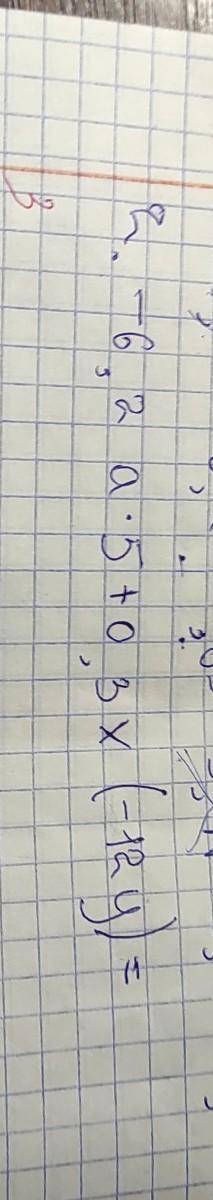 2. -6,2 a · 5 + 0,3 x (-12 y) =
3